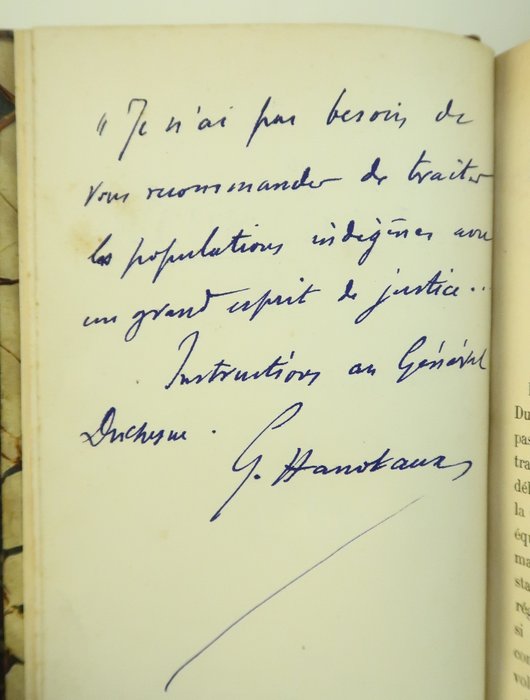 "Je n'ai pas besoin de
vous recommander de traiter
les populations indigènes avec
un grand esprit de justice...
Instructions au Général
Duchesne.
G. Hanotaux
Du
pas
tra
dél
la
équ
ma
sta
rég
si
con
vol